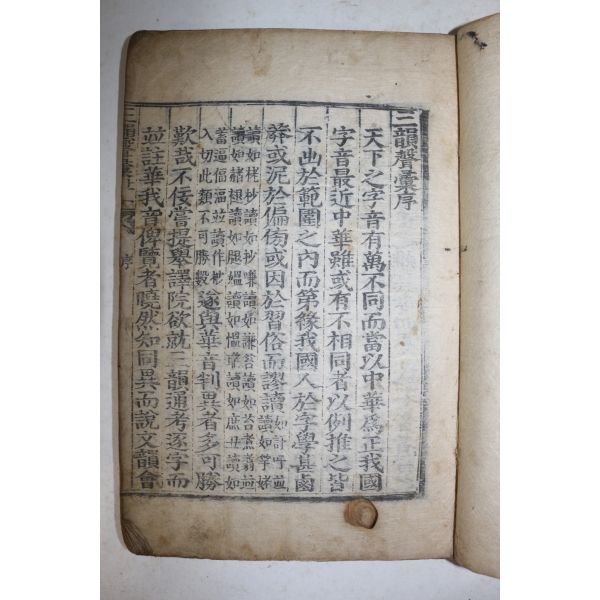 三韻聲彙序
天下之字音有萬不同而當以中華爲正我國
字音最近中華雖或有不相同者以例推之皆
不出於範圍之內而第緣我國人於字學甚鹵
莽或泥於偏傍或因於習俗而謬讀
入切此類不可勝數遂與華音判異者多可勝
歎哉不佞嘗提擧譯院欲就三韻通考逐字而
並註華我音俾覽者曉然知同異而說文韻會
三韻聲彙 序